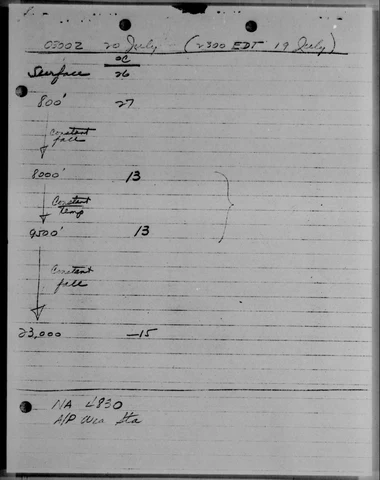 0300Z 20 July (2300 EDT 19 July)
°C
Surface 26
800' 27
Constant
fall
8000' 13
Constant
temp
9500' 13
Constant
fall
23,000 -15
NA 4830
A/P Wea Sta